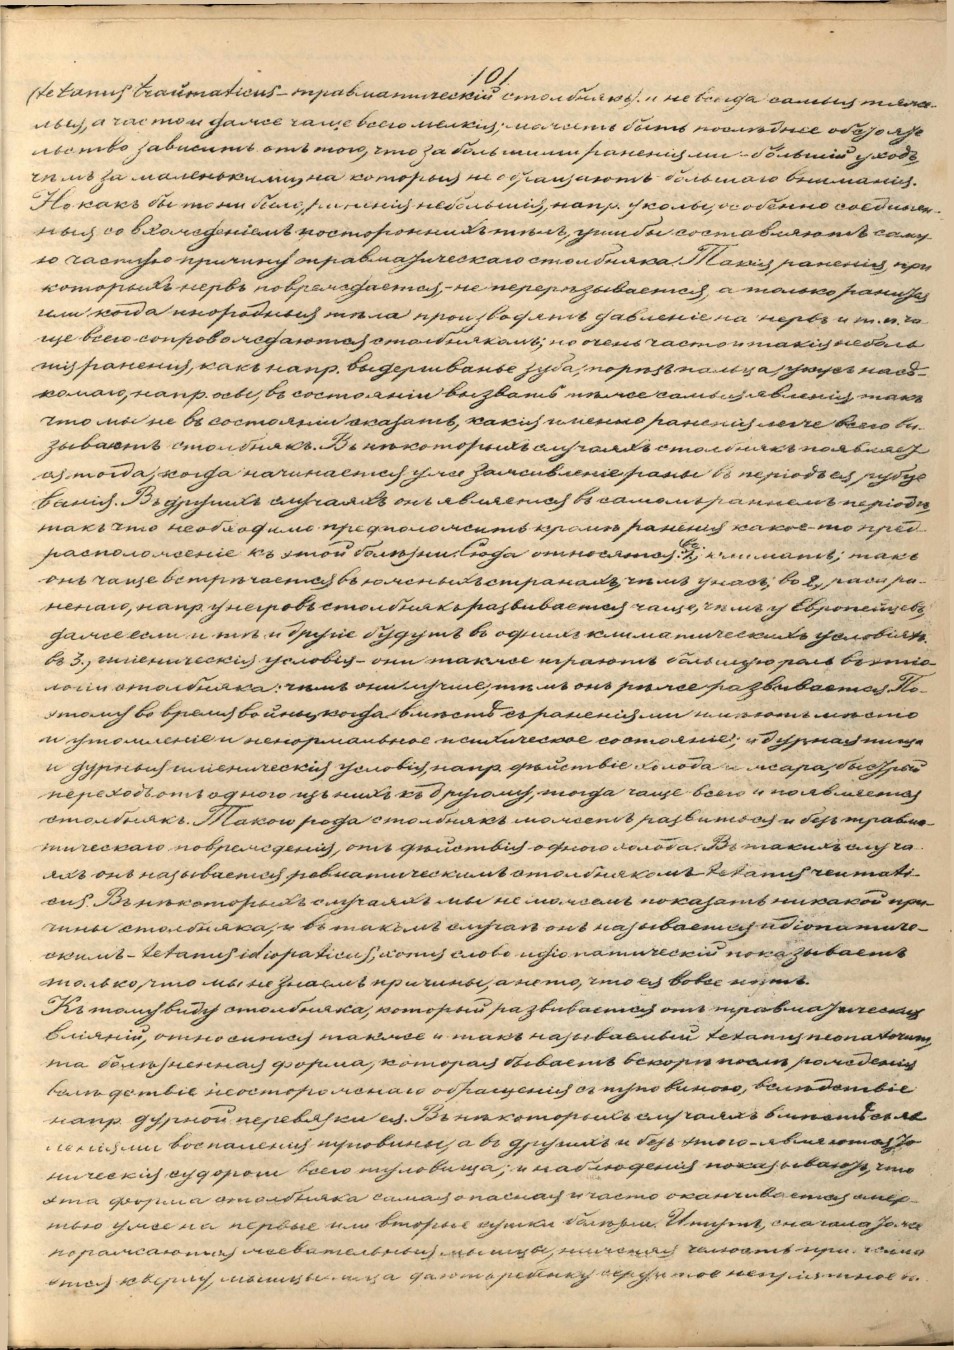 101
(tetanus traumaticus – травматическій столбнякъ). и не всегда самыя тяже-
лыя, а частои даже чаще всего мелкія; можетъ быть послѣднее обстоя
льство зависитъ отъ того, что за большими раненіями – большій уходъ,
чѣмъ за маленькими, на которыя не обращаютъ большаго вниманія.
Но какъ бы то ни было, раненія небольшія, напр. уколы, особенно соединен-
ныя со вхожденіемъ постороннихъ тѣлъ, ушибы составляютъ саму
ю частую причину травматическаго столбняка. Такія раненія, при
которыхъ нервъ повреждается, – не перерѣзывается, а только раняется
или когда инородныя тѣла производятъ давленіе на нервъ и т. п. ча
ще всего сопровождаются столбнякомъ; но очень часто и такія неболь
шія раненія, какъ напр. выдерживанье зуба, порѣзъ пальца, укусъ насѣ-
комаго, напр. осы, въ состояніи вызвать тѣже самыя явленія такъ
что мы не въ состояніи сказать, какія именно раненія легче всего вы
зываютъ столбнякъ. Въ нѣкоторыхъ случаяхъ столбнякъ появляет
ся тогда, когда начинается уже заживленіе раны въ періодъ ея рубце
ванія. Въ другихъ случаяхъ онъ является въ самомъ раннемъ періодѣ
такъ что необходимо предположить кромѣ раненія какое-то пред-
расположеніе къ этой болѣзни. Сюда относятся: во 1, климатъ; такъ
онъ чаще встрѣчается въ южныхъ странахъ, чѣмъ у насъ; во 2, раси ра-
неннаго, напр. у негровъ столбнякъ развивается чаще, чѣмъ у Европейцевъ,
даже если и тѣ и другіе будутъ въ однихъ климатическихъ условіяхъ.
въ 3., гигіеническія условія – они также играютъ большую роль въ этіо-
логіи столбняка: чѣмъ они лучше, тѣмъ онъ рѣже развивается. По-
этому во время войны, когда вмѣстѣ съ раненіями имѣютъ мѣсто
и утомленіе и ненормальное психическое состояніе; и дурная пища
и дурныя гигіеническія условія, напр. дѣйствіе холода и жара, быстрый
переходъ отъ одного изъ нихъ къ другому, тогда чаще всего и появляется
столбнякъ. Такого рода столбнякъ можетъ развиться и безъ травма-
тическаго поврежденія, отъ дѣйствія одного холода. Въ такихъ случа
яхъ онъ называется ревматическимъ столбнякомъ tetanus reumati-
cus. Въ нѣкоторыхъ случаяхъ мы не можемъ показать никакой при-
чины столбняка, и въ такомъ случаѣ онъ называется идіопатиче-
скимъ – tetanus idiopaticus; хотя слово идіопатическій показываетъ
только, что мы не знаемъ причины, а не то, что ея вовсе нѣтъ.
Къ тому виду столбняка, который развивается отъ травматическихъ
вліяній, относится также и такъ называемый tetanus neonatorum,
та болѣзненная форма, которая бываетъ вскорѣ послѣ рожденія
вслѣдствіе неосторожнаго обращенія съ пуповиною, вслѣдствіе
напр. дурной перевязки ея. Въ нѣкоторыхъ случаяхъ вмѣстѣ съ яв
леніями воспаленія пуповины, а въ другихъ и безъ этого – являются то
ническія судороги всего туловища; и наблюденія показываютъ, что
эта форма столбняка самая опасная и часто оканчивается смер-
тью уже на первые или вторые сутки болѣзни. И тутъ, сначала тоже
поражаются жевательныя мышцы, нижняя челюсть
кверху, мышцы лица даютъ ребенку сердитое непріятное